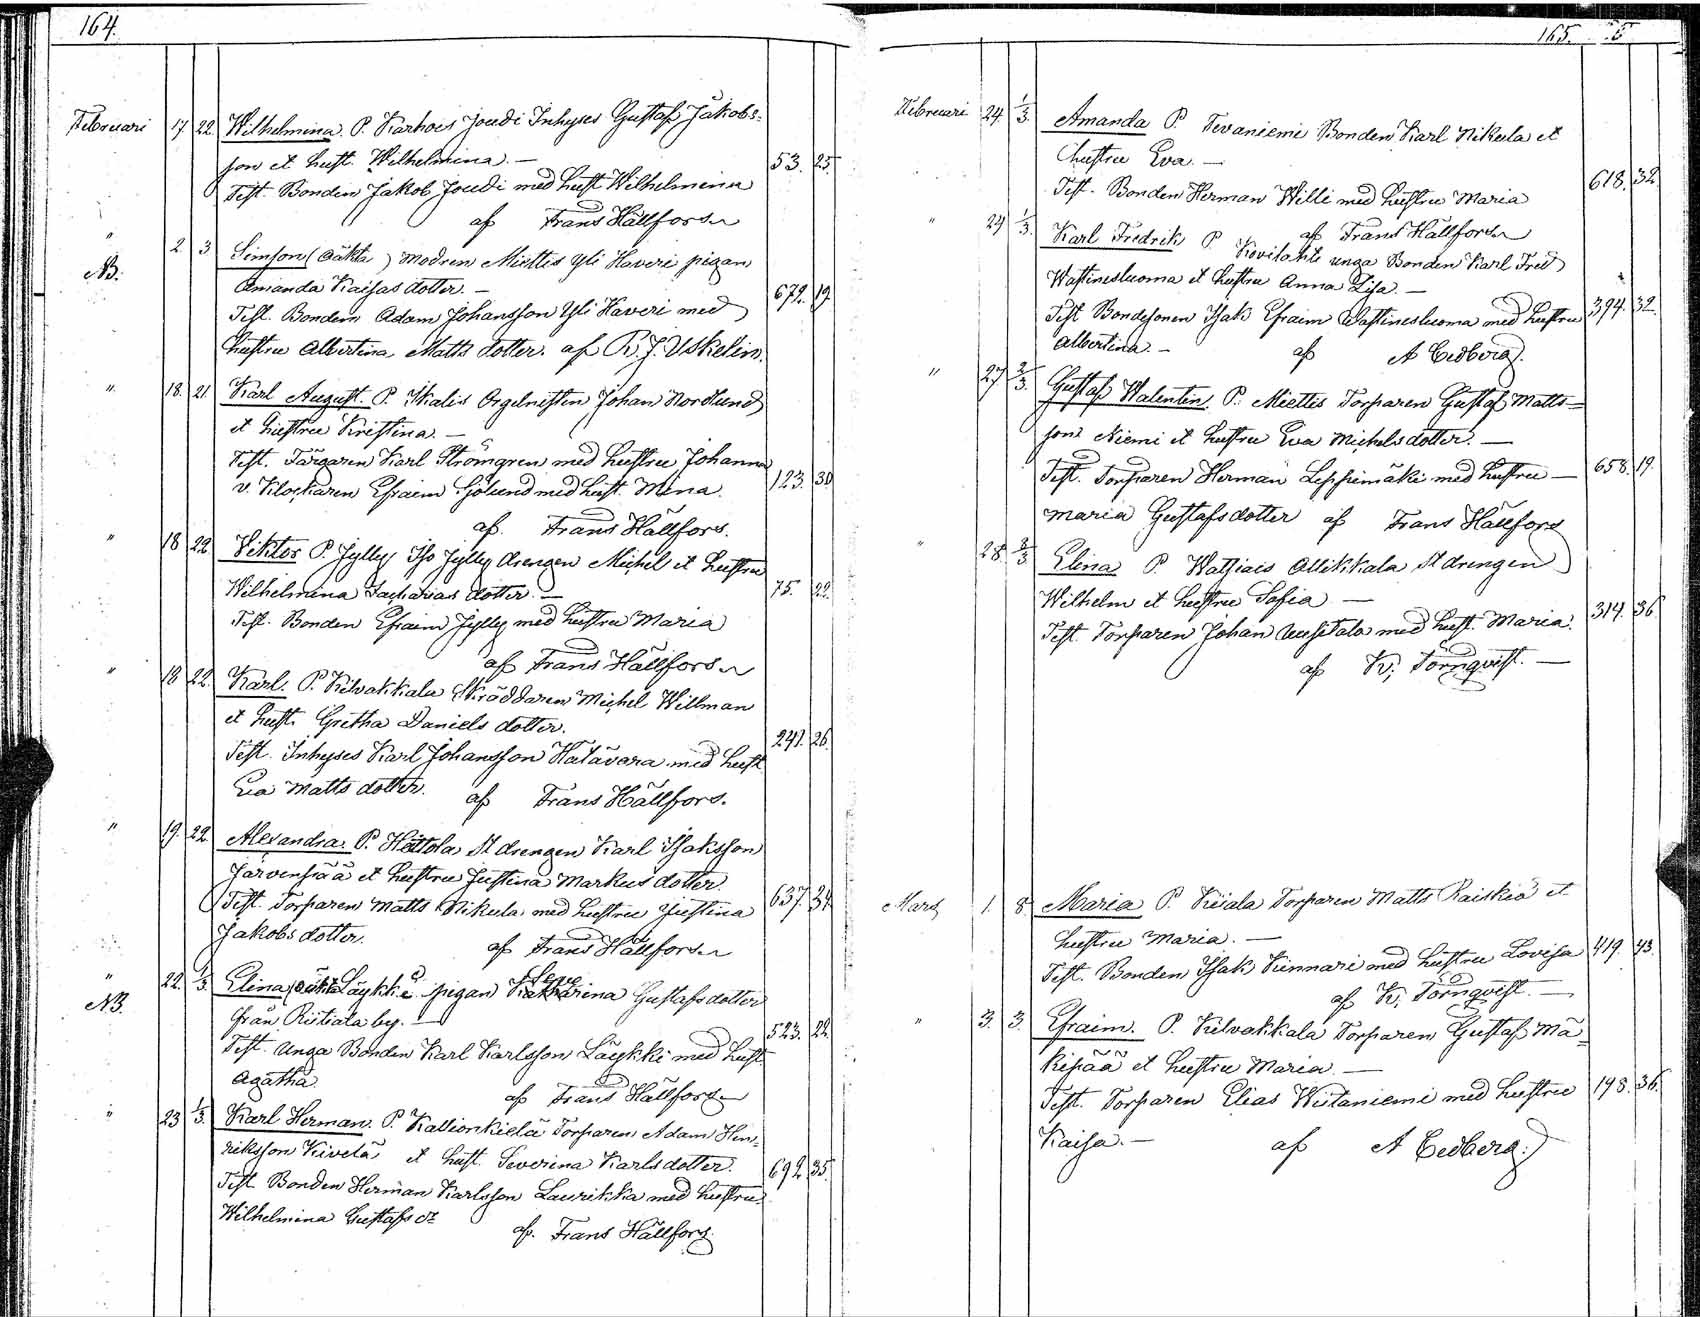 164.
Februari 17 22. Wilhelmina. P. Karhois Joudi Inhyses Gustaf Jakobs-
son et hust. Wilhelmina. — 53. 25
Test. Bonden Jakob Joudi med hust Wilhelmina
af Frans Hällfors
" 2 3 Simson (oäkta) modren Miettis Yli Haveri pigan
NB. Amanda Kaisas dotter. — 672. 19.
Test. Bonden Adam Johansson Yli Haveri med
hustru Albertina Matts dotter. af R. J. Yskelin.
" 18. 21. Karl August. P. Ikalis Orgelnisten Johan Nordlund
et hustru Kristina. —
Test. Färgaren Karl Strömgren med hustru Johanna 123. 30
v. Klockaren Efraim Sjölund med hust. Mina.
af Frans Hällfors.
" 18 22 Viktor P. Jylly Iso Jylly drengen Michel et hustru
Wilhelmina Zacharias dotter. — 75. 22.
Test. Bonden Efraim Jylly med hustru Maria
af Frans Hällfors
" 18 22. Karl. P. Kilvakkala Skräddaren Michel Willman
et hust. Gretha Daniels dotter. 241. 26.
Test. Inhyses Karl Johansson Hatavara med hust
Eva Matts dotter. af Frans Hällfors.
" 19. 22. Alexandra. P. Höttola St drengen Karl Isaksson
Järvenpää et hustru Justina Markus dotter.
Test. Torparen Matts Nikula med hustru Justina 637. 34.
Jakobs dotter. af Frans Hällfors
" 22. 1/3 Elina (oäkta Läykki pigan Katharina Gustafs dotter
NB. från Ristiala by. — 523. 22.
Test. Unga Bonden Karl Karlsson Läykki med hust
Agatha. af Frans Hällfors
" 23 1/3. Karl Herman. P. Kallionkielä Torparen Adam Hen-
riksson Kivelä et hust. Severina Karls dotter. 692. 35.
Test Bonden Herman Karlsson Laurikka med hustru
Wilhelmina Gustafs dr af. Frans Hällfors.
165.
Februari 24 1/3. Amanda P. Tevaniemi Bonden Karl Nikula et
hustru Eva. — 618. 32
Test. Bonden Herman Willi med hustru Maria
af Frans Hällfors
" 24 1/3. Karl Fredrik P. Kovilahti unga Bonden Karl Fred
Wastinesluoma et hustru Anna Lisa. —
Test Bondesonen Isak Efraim Wastinesluoma med hustru 394. 32.
Albertina. — af A Cedberg.
" 27 2/3. Gustaf Walentin. P. Miettis Torparen Gustaf Matts-
son Niemi et hustru Eva Michels dotter. —
Test. Torparen Herman Leppimäki med hustru — 658. 19.
Maria Gustafs dotter af Frans Hällfors
" 28 3/3 Elina P. Watsiais Ollikkala St drengen
Wilhelm et hustru Sofia — 314. 36
Test. Torparen Johan Uusitalo med hust. Maria.
af K. Törnqvist. —
Mars 1. 8. Maria P. Kiiala Torparen Matts Raiskio et
hustru Maria. — 419. 43.
Test. Bonden Isak Kinnari med hustru Lovisa
af K. Törnqvist. —
" 3. 3. Efraim. P. Kilvakkala Torparen Gustaf Mä-
kipää et hustru Maria. —
Test. Torparen Elias Wiitaniemi med hustru 198. 36.
Kaisa. — af A Cedberg.